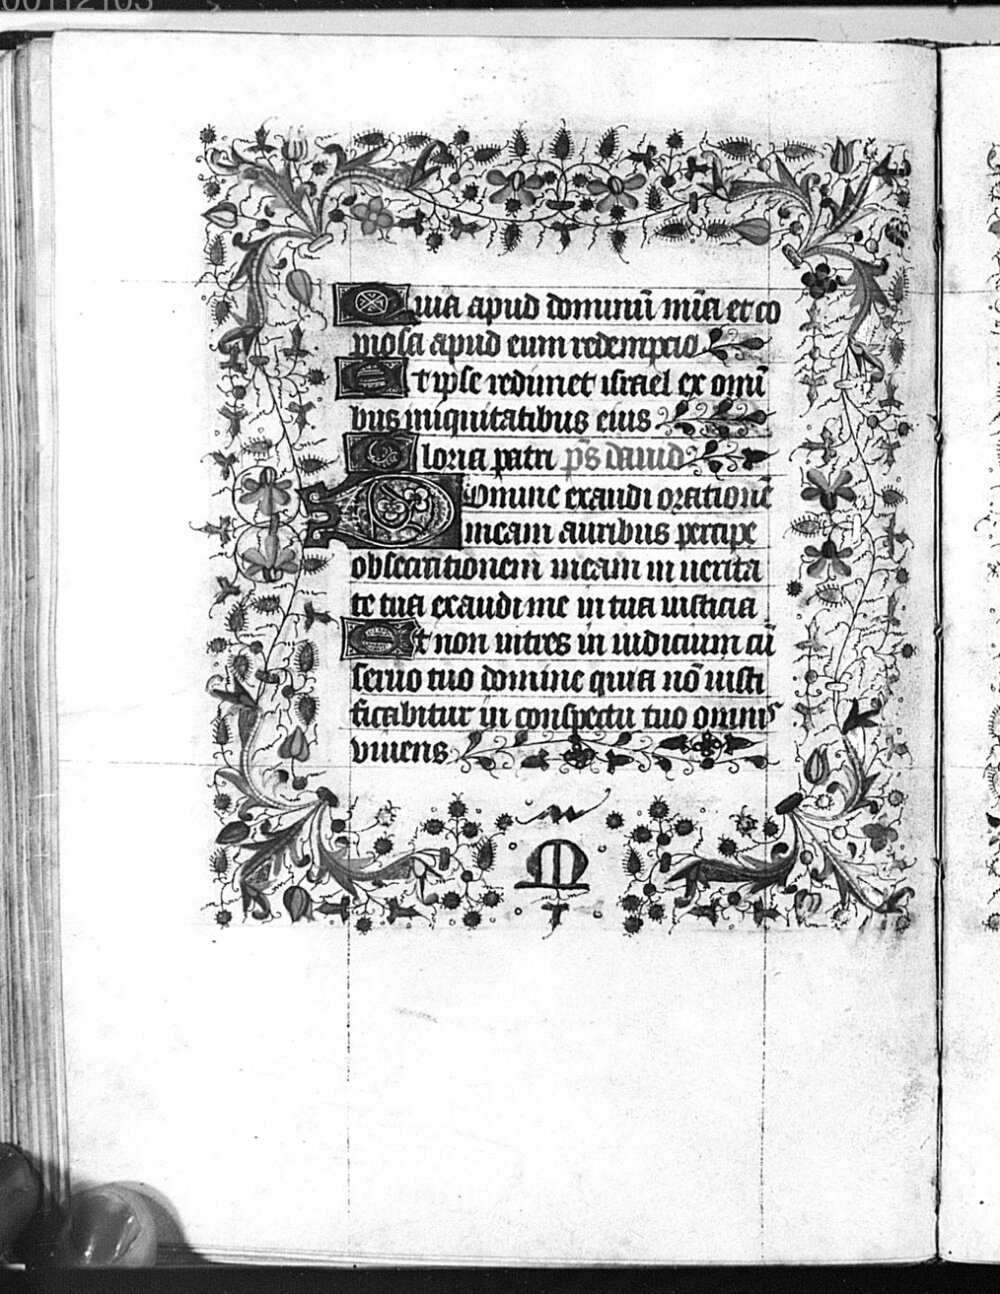 Quia apud dominũ mĩa et co
piosa apud eum redempcio
Et ipse redimet israel ex omĩ
bus iniquitatibus eius
Gloria patri p̃s dauid
Domine exaudi orationẽ
meam auribus percipe
obsecrationem meam in uerita
te tua exaudi me in tua iusticia
Et non intres in iudicium cũ
seruo tuo domine quia nõ iusti
ficabitur in conspectu tuo omnis
viuens
M